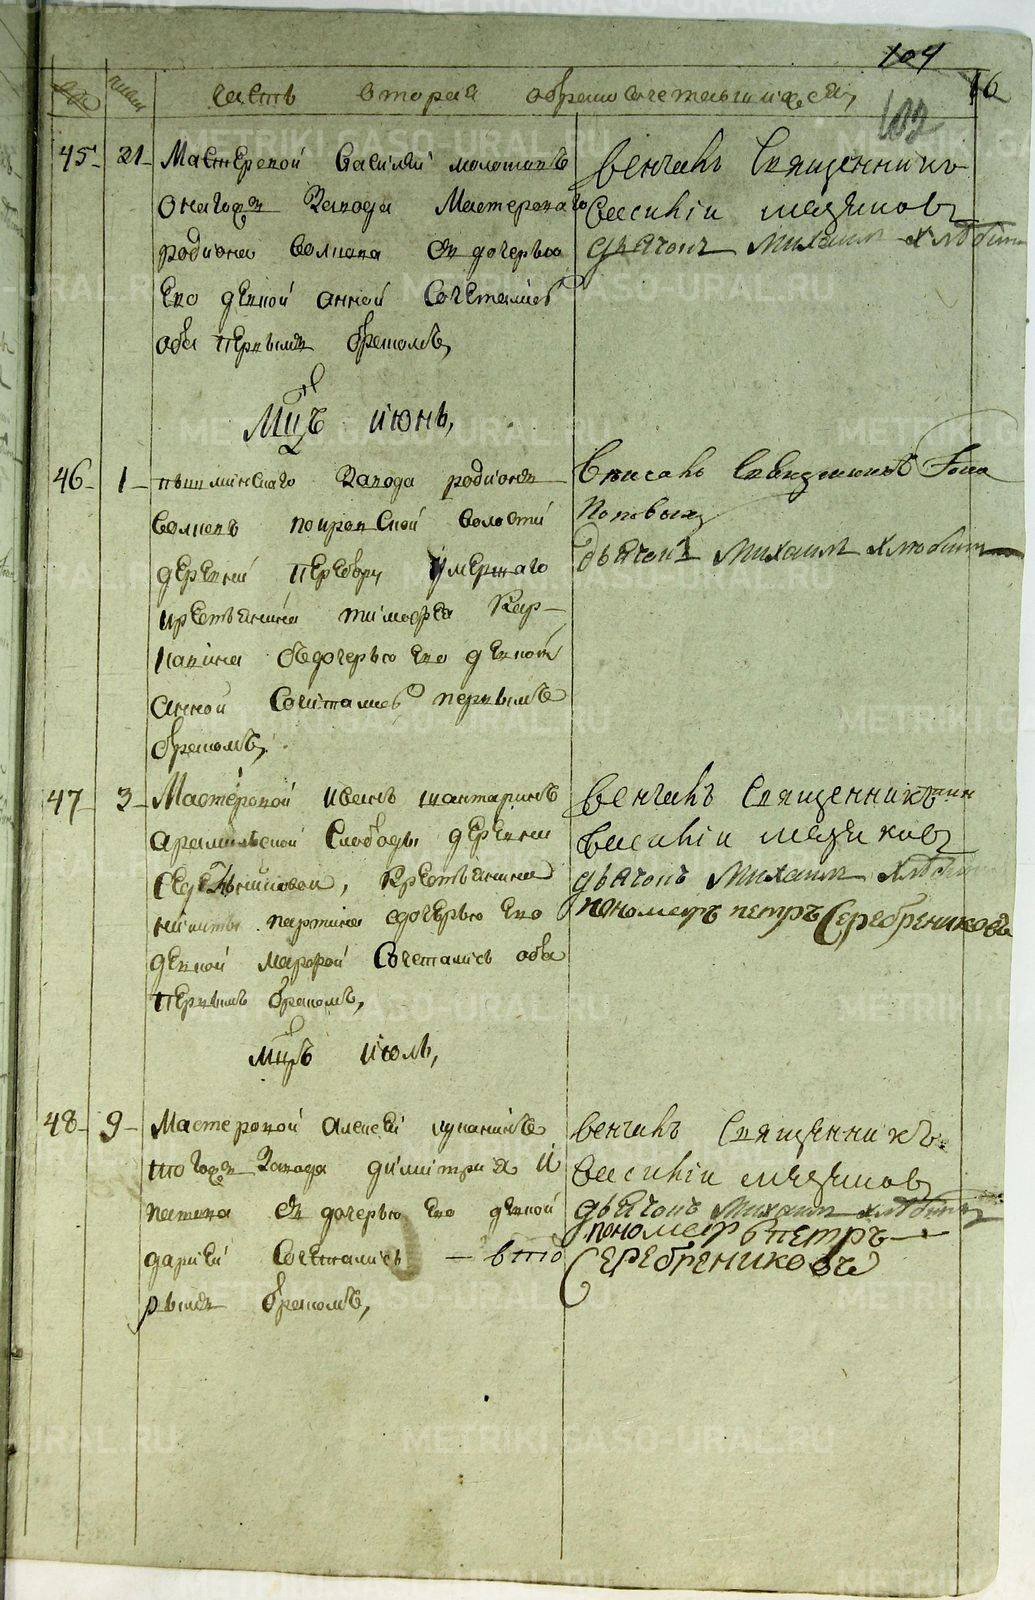 104
16
102
часть вторая о бракосочетавшихся,
45 21 Мастеровой Василий молотовъ
онагожъ Завода Мастероваго
родиона Волкова съ дочерью
Его девкой анной Сочетались
оба первымъ бракомъ,
Венчалъ Священникъ
Василий
дьячокъ Михаилъ Хлюбинъ
Мцъ июнь,
46 1 пышминскаго Завода родионъ
Волковъ покровской Волости
деревни умершаго
крестьянина тимофея Кар-
пакина съ дочерью Его девкой
анной Сочитались первымъ
бракомъ,
Попова
дьячокъ Михаилъ Хлюбинъ
47 3 Мастеровой иванъ шантаринъ
арамильской Слободы деревни
Крестьянина
никиты партина с дочерью Его
девкой марфой Сочетались оба
первымъ бракомъ,
Венчалъ Священникъ
Василий
дьячокъ Михаилъ
пономарь петръ Серебрениковъ
мцъ июль,
48 9 Мастеровой алексей лупанинъ
тогожъ Завода дмитрия И
патова съ дочерью Его девкой
дарьей Сочетались — вто
рымъ бракомъ,
Венчалъ Священникъ
Василий
дьячокъ Михаилъ Хлюбинъ
пономарь петръ
Серебрениковъ
METRIKI.GASO-URAL.RU